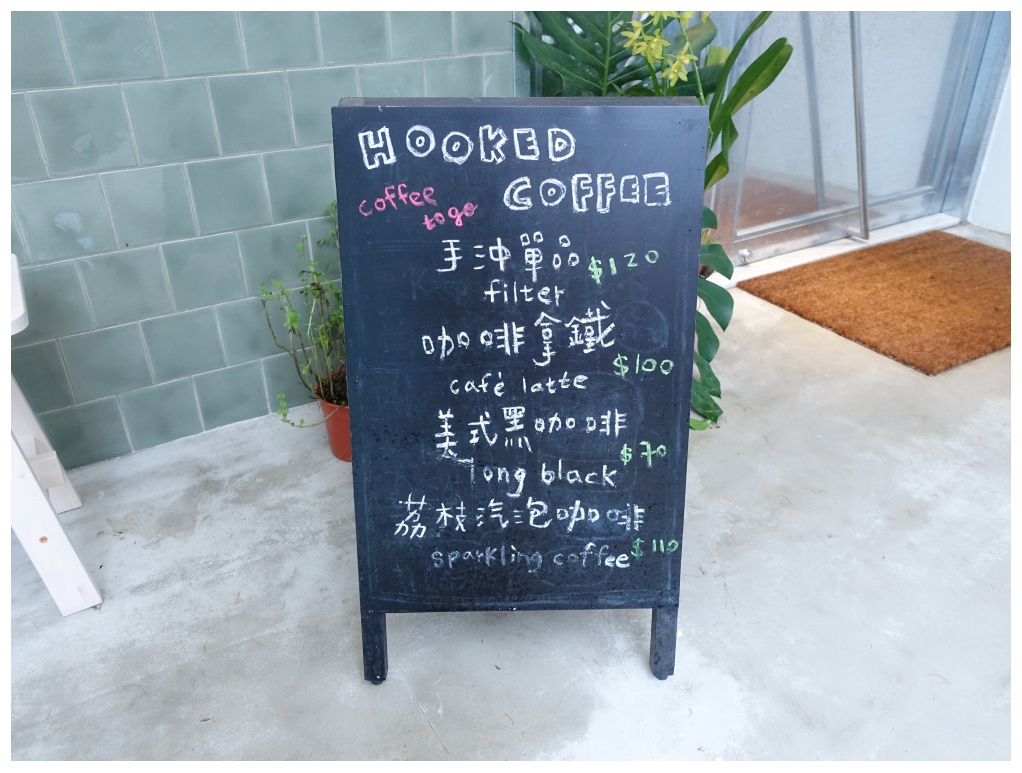 HOOKED
COFFEE
coffee
to go
手沖單品 $120
filter
咖啡拿鐵
$100
café latte
美式黑咖啡
$70
long black
荔枝汽泡咖啡
$110
sparkling coffee